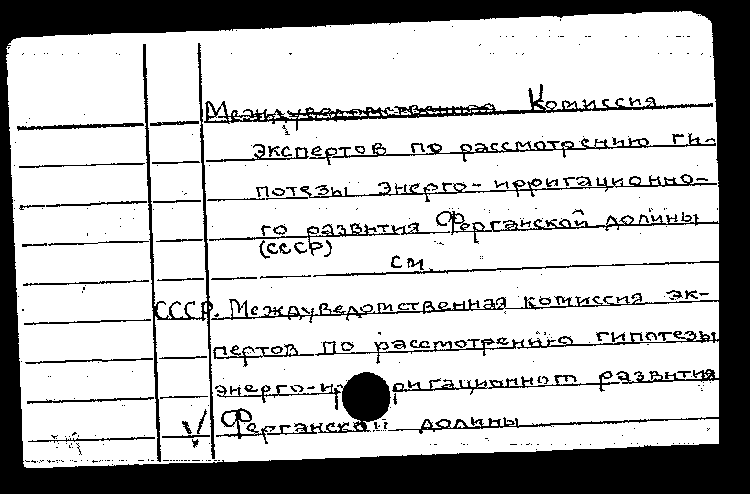 Междуведомственная Комиссия
экспертов по рассмотрению ги-
потезы энерго-ирригационно-
го развития Ферганской долины
(СССР)
см.
СССР. Междуведомственная комиссия эк-
пертов по рассмотрению гипотезы
энерго-ирригационного развития
Ферганской долины